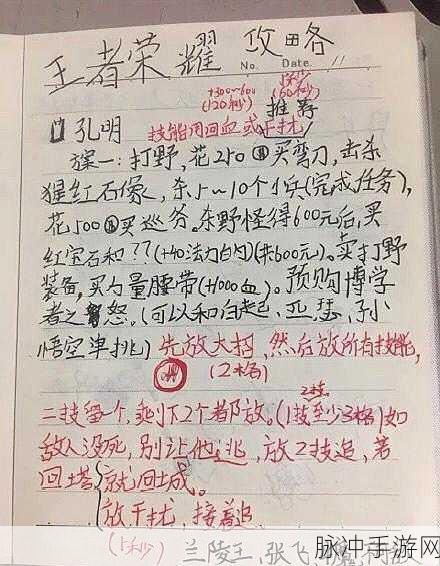 王者荣耀 攻略
No. Date. 11
+300~600 (120秒)
1秒 (60秒)
推荐
孔明 技能用回血或干扰
方案一:打野,花250买弯刀,击杀
猩红石像,杀5~10个小兵(完成任务),
花500买巡务。杀野怪得600元后,买
红宝石和??(+40法力白内)(共600元)。买打野
装备,买力量腰带(+1000血)。预购博学
者之怒。(可以和白起、亚瑟、孙
悟空单挑)先放大招,然后放所有技能,
(2格)
2技
二技留一个,剩下2个都放。(1技至少3格)如
敌人没死,别让他逃,放2技追,若
回塔 就回城。
放干扰,接着追
(1秒) 兰陵王,张飞,
脉冲手游网